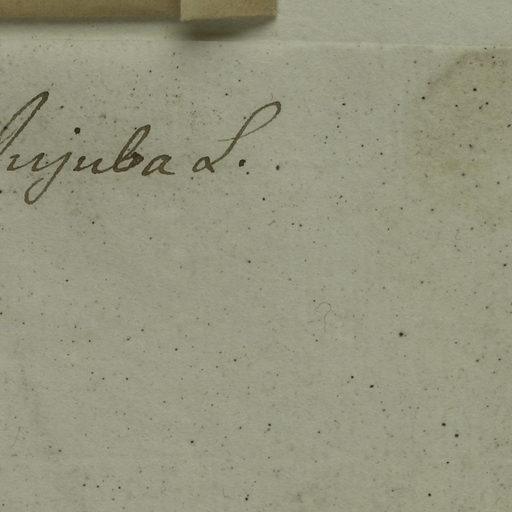 Jujuba L.